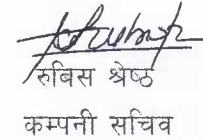 रुबिस श्रेष्ठ
कम्पनी सचिव